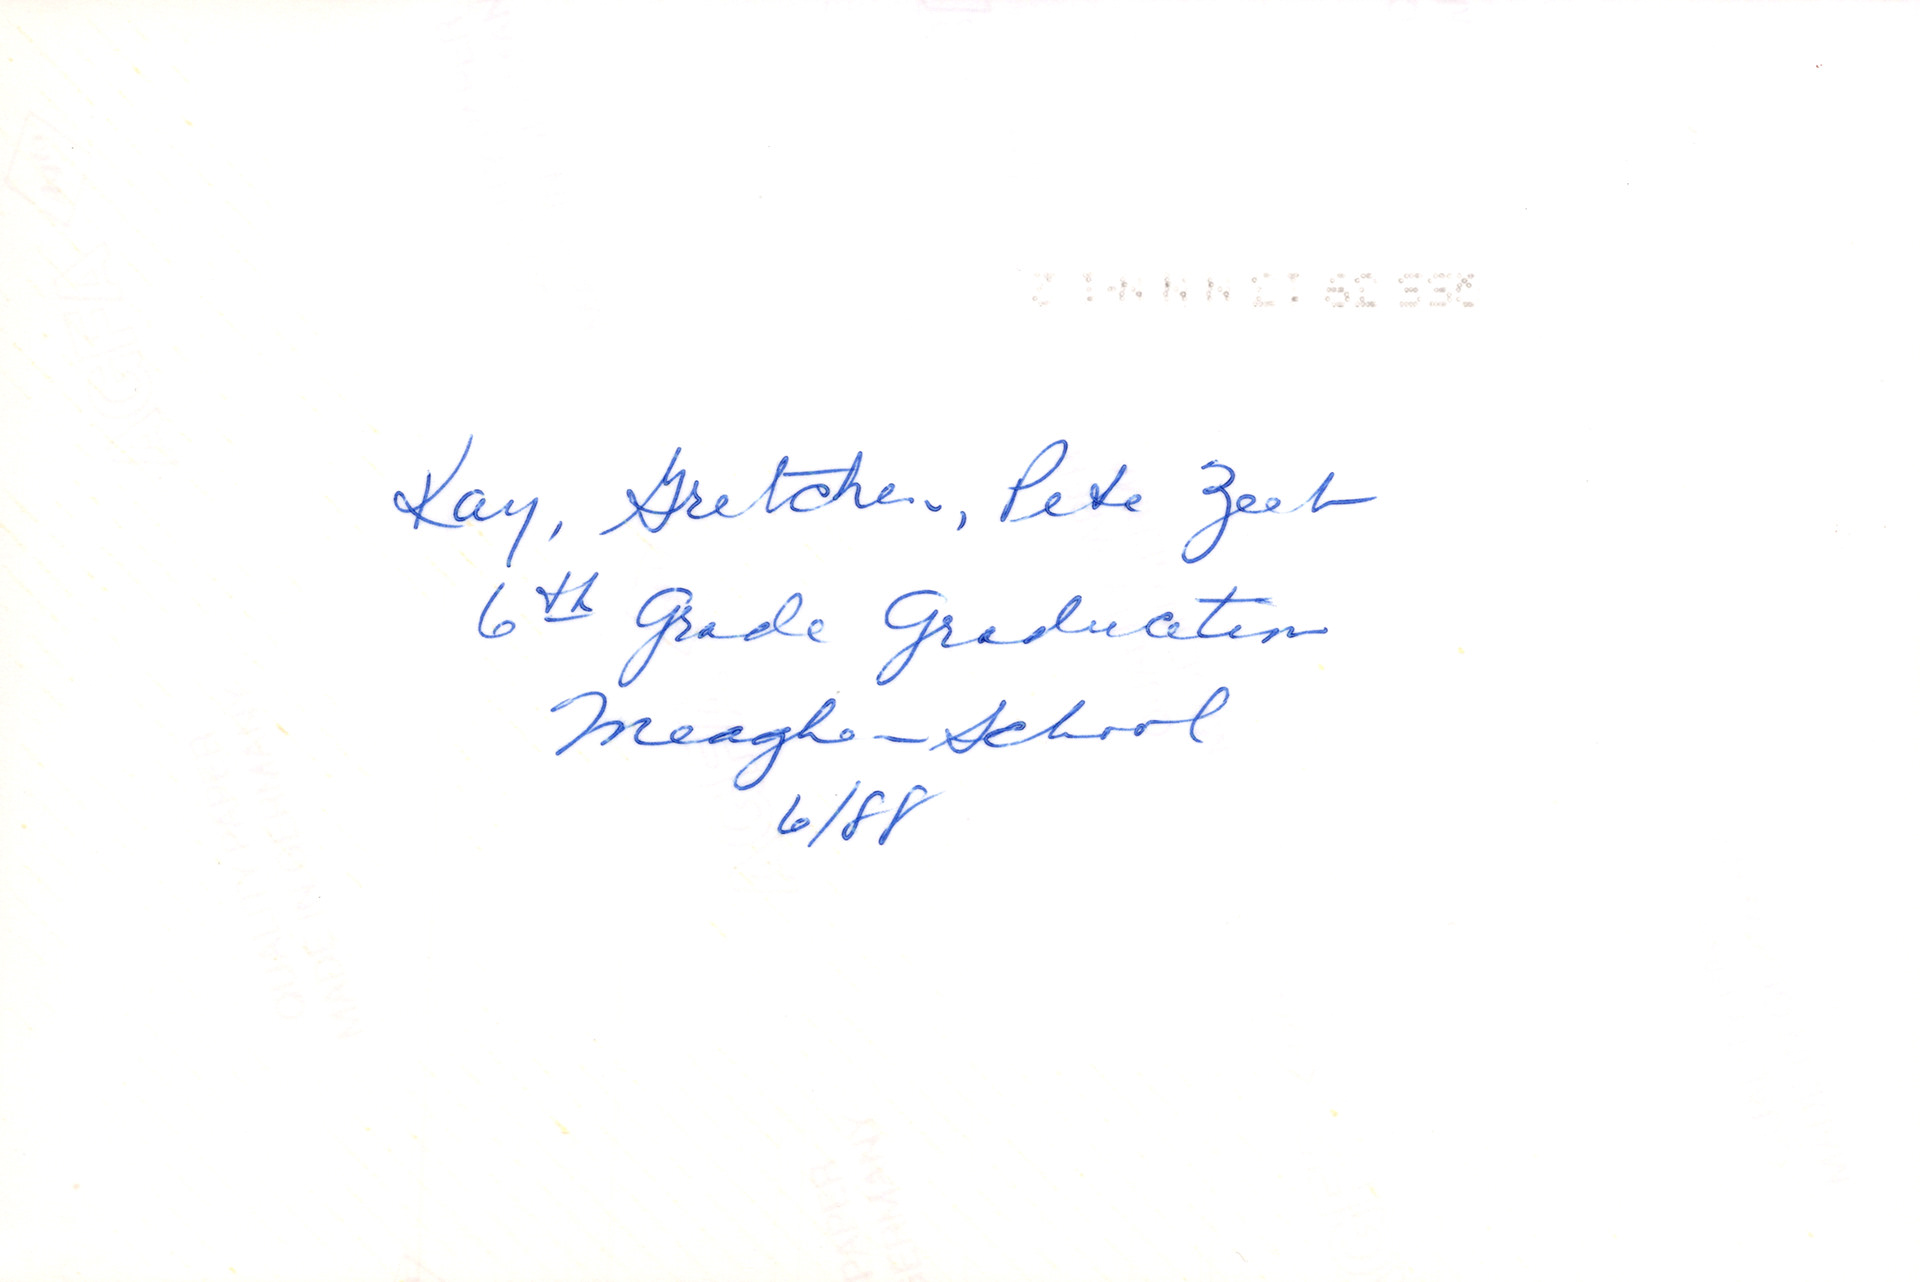 Kay, Gretchen, Pete Zeeb
6th Grade Graduation
Meagher School
6/88